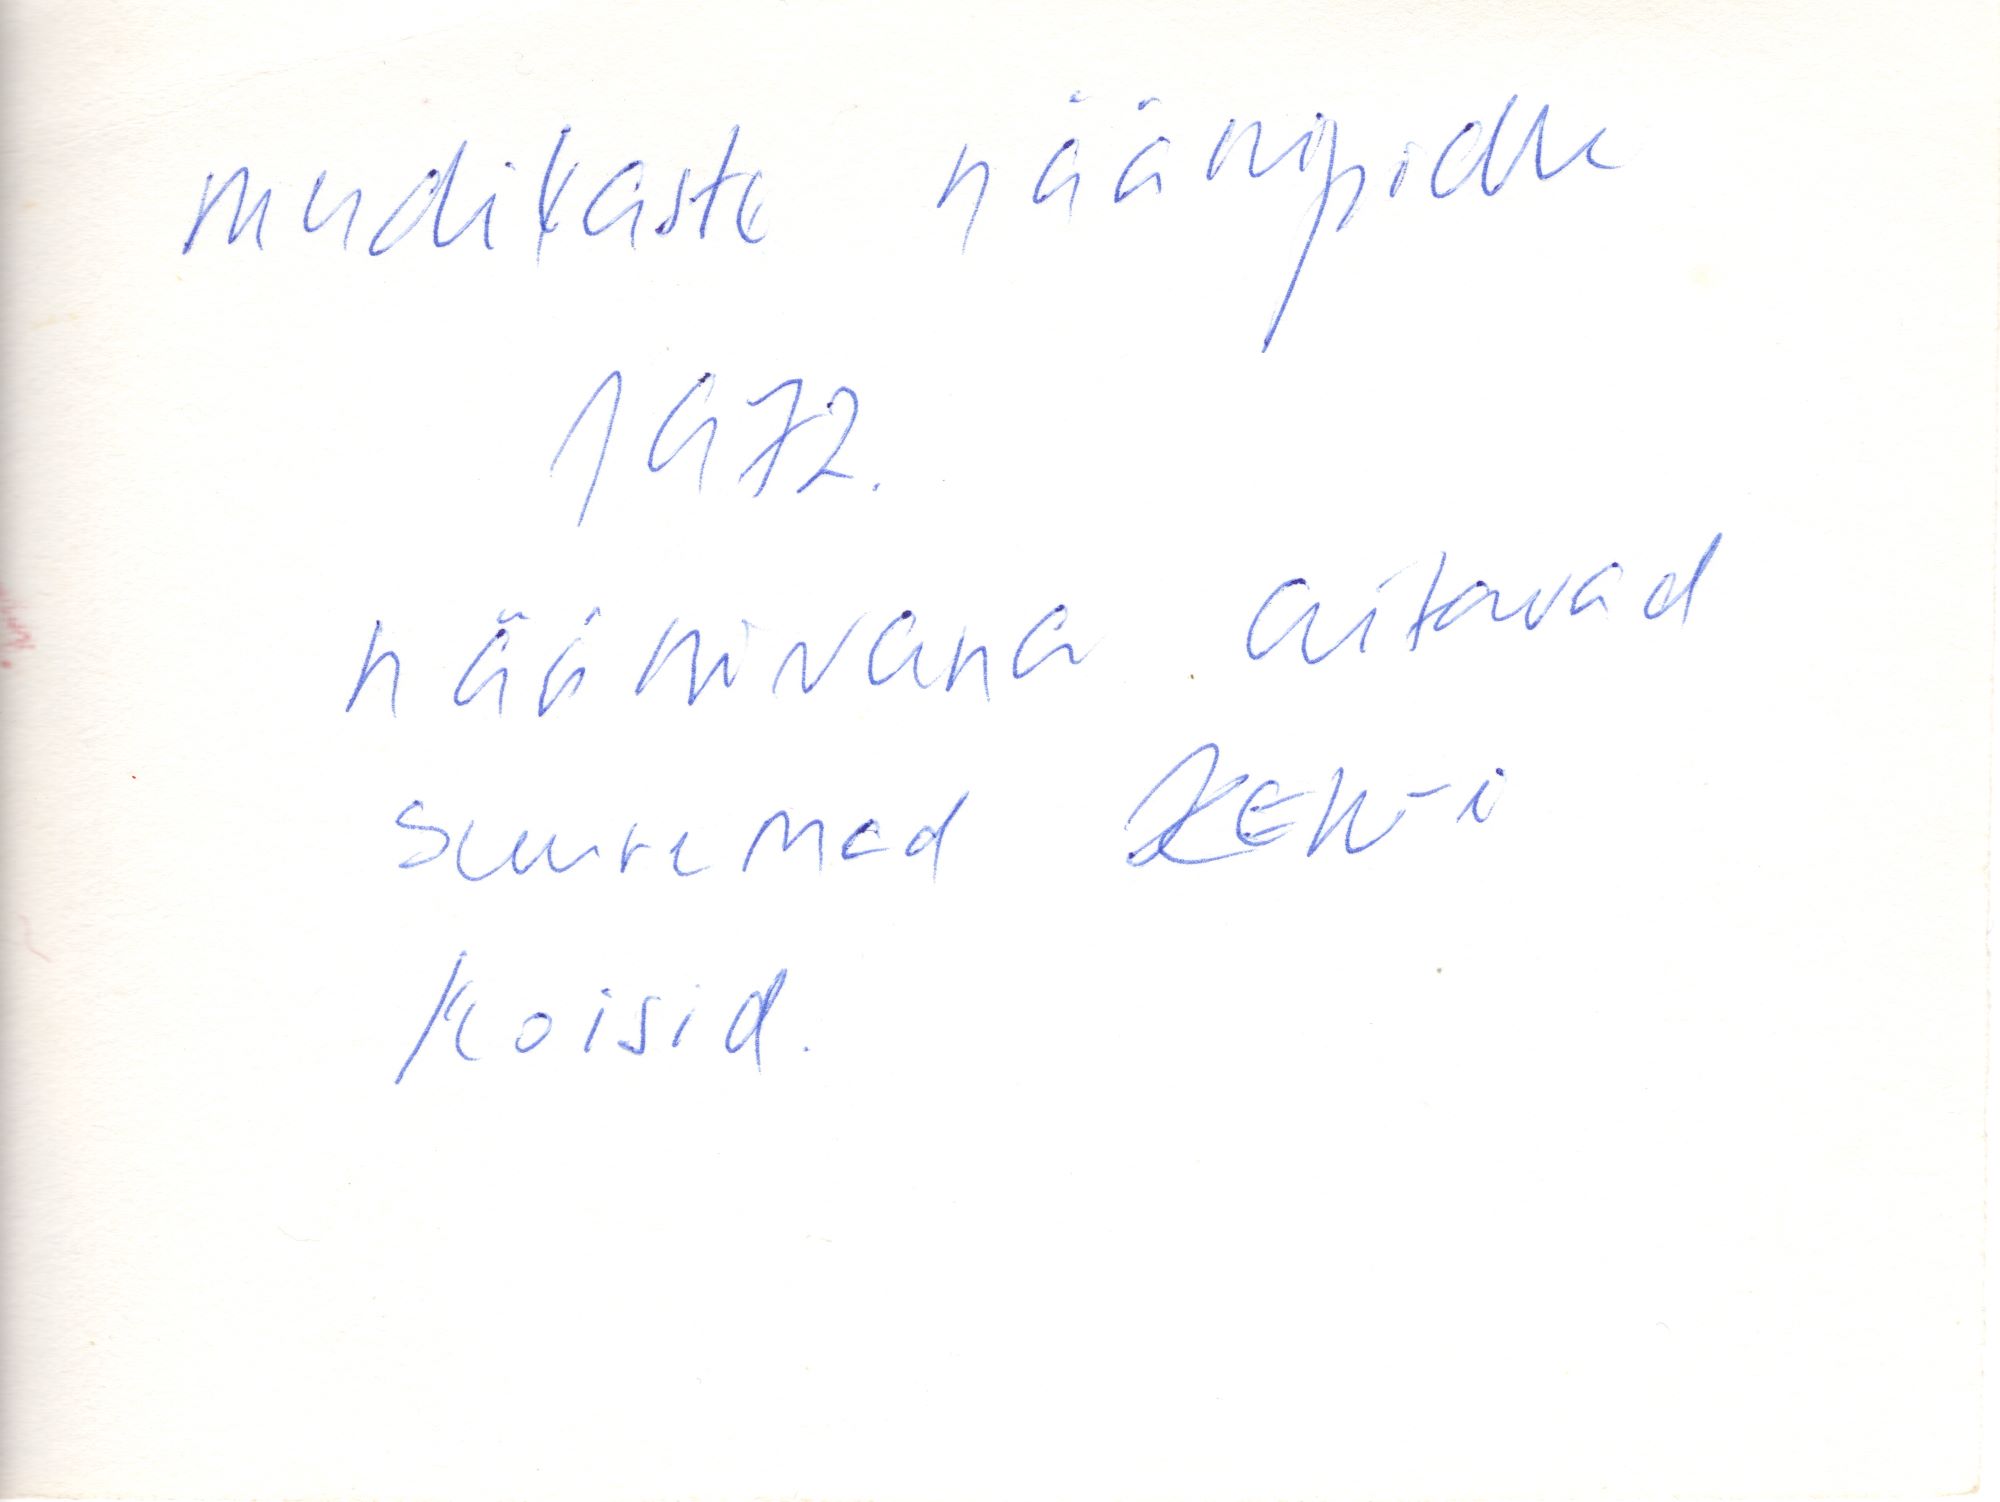 mudikaste nääripidu
1972.
näärivana aitavad
suuremad KEK-i
koisid.